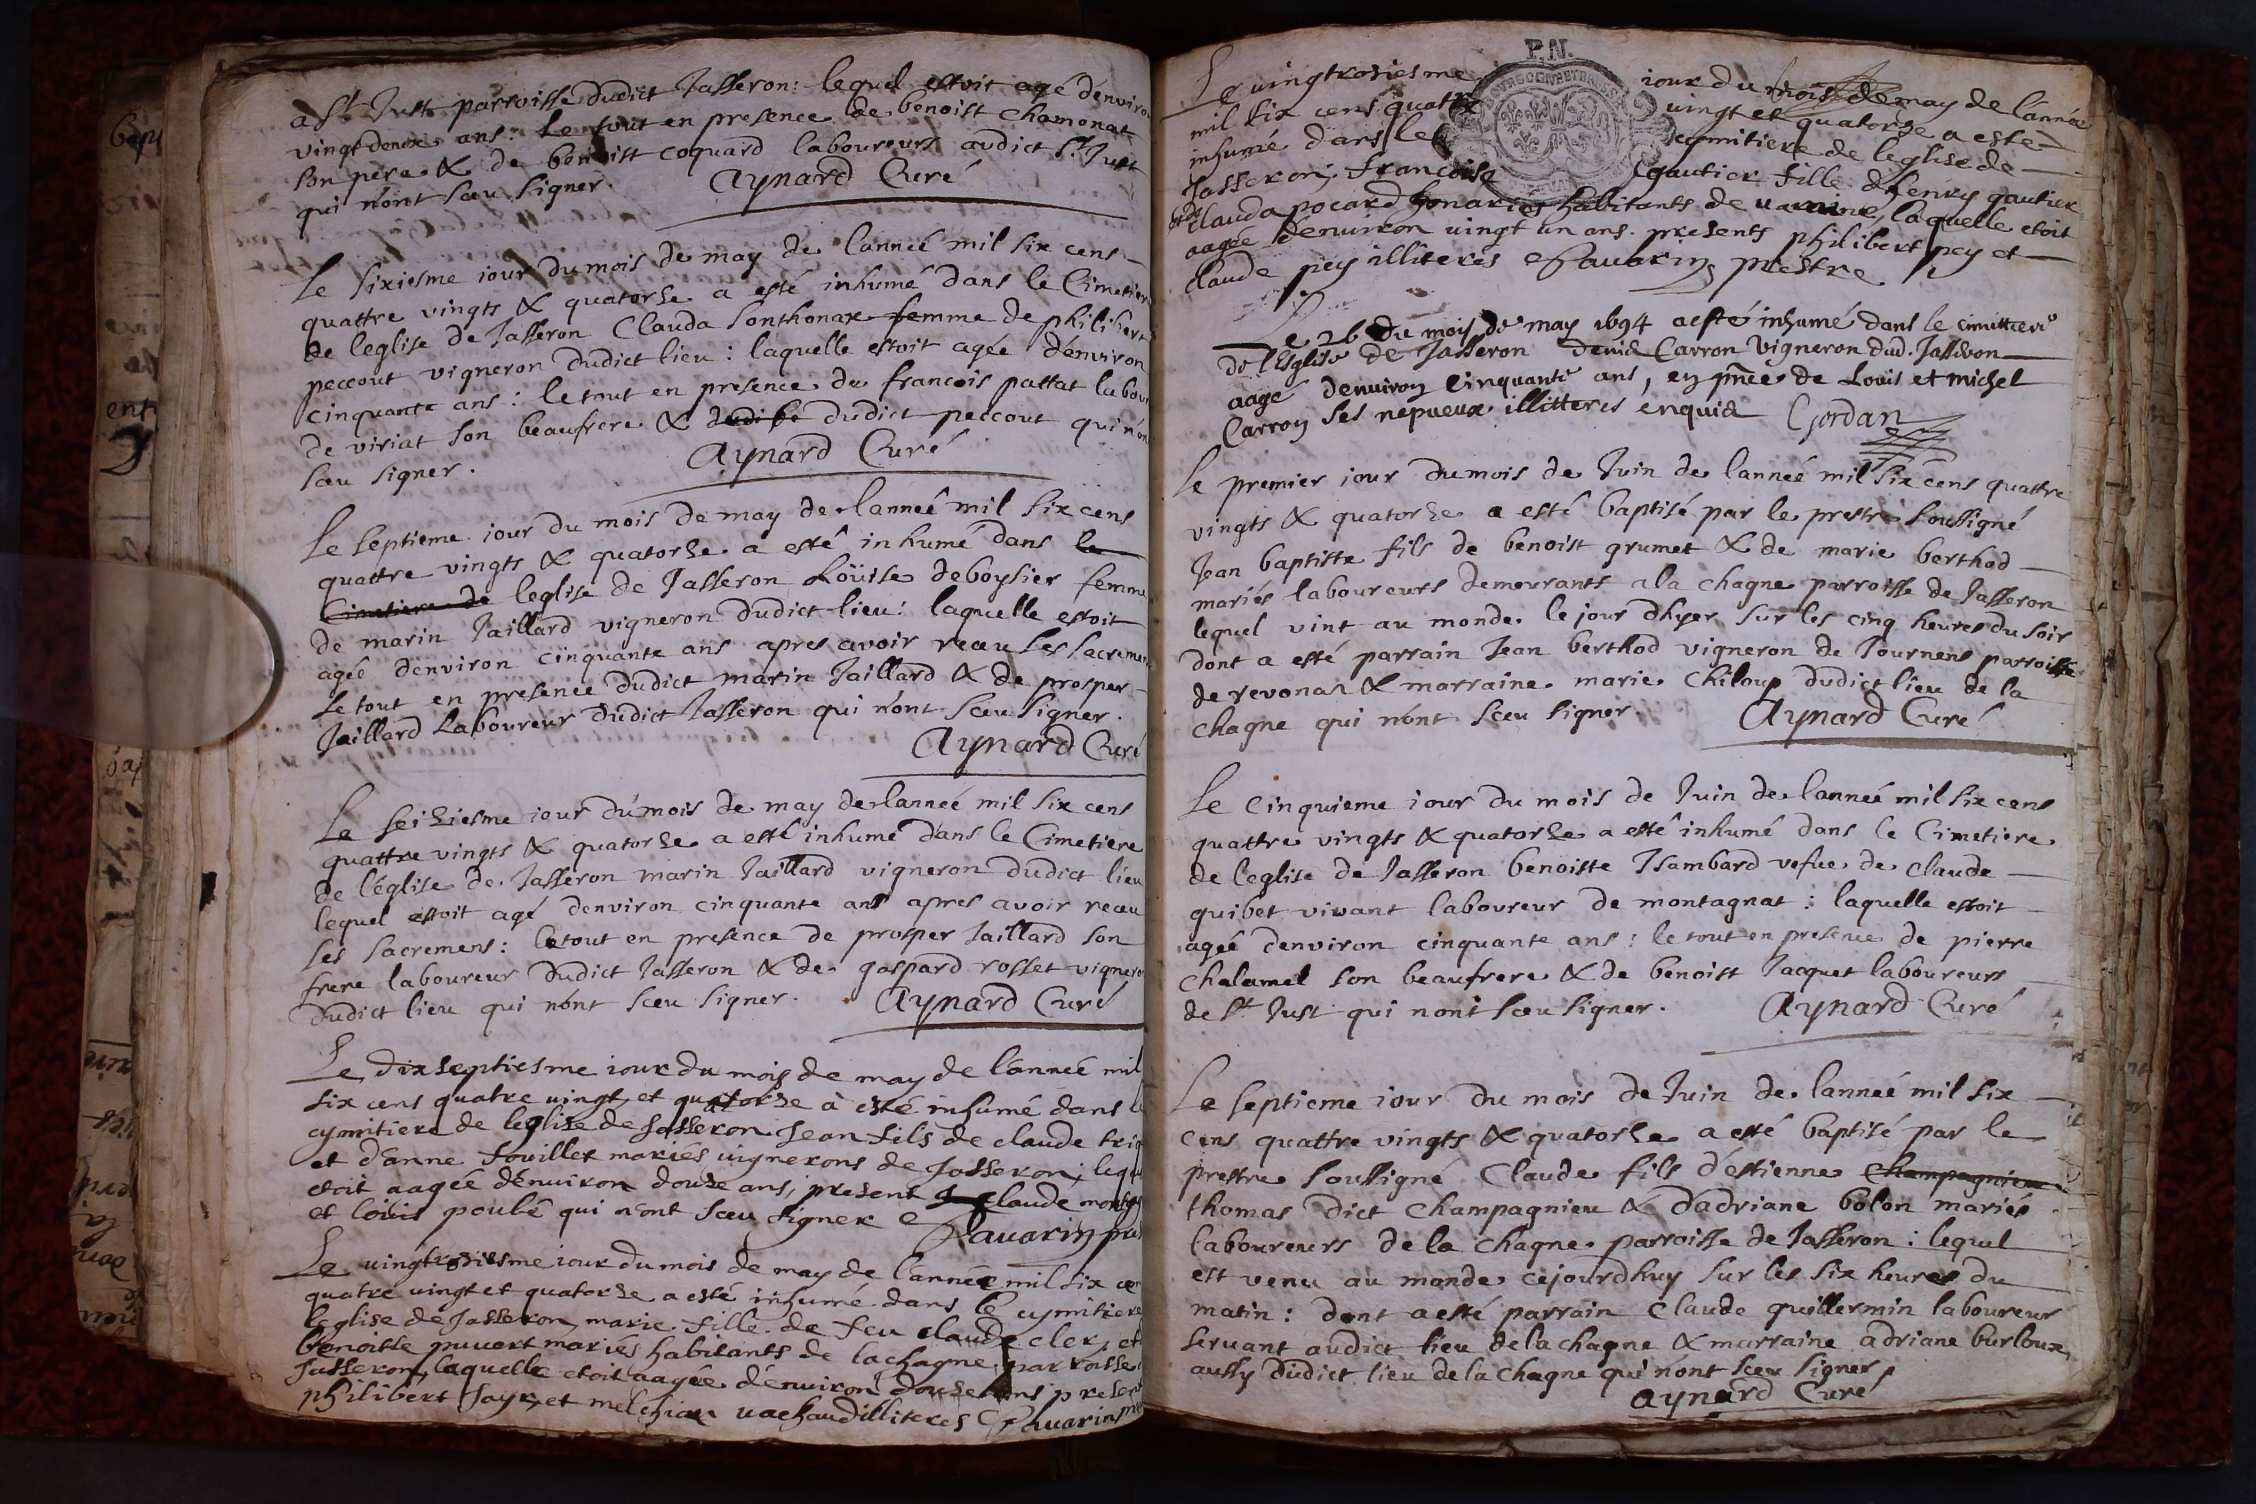 a St Just parroisse dudict Jasseron: lequel estoit agé d'enviro
vingt deux ans: Le tout en presence de benoist Chamonat
son pere & de benoist coquard laboureurs audict St Just
qui n'ont sceu signer. Aynard Curé
Le sixiesme iour du mois de may de l'anneé mil six cens
quattre vingts & quatorze a esté inhumé dans le Cimetiere
de leglise de Jasseron Clauda Sonthonax femme de philibert
peccout vigneron dudict lieu: laquelle estoit agée d'environ
cinquante ans: le tout en presence de francois pattat labou
de viriat son beaufrere & dudict peccout qui n'ont
sceu signer. Aynard Curé
Le septieme iour du mois de may de l'anneé mil six cens
quattre vingts & quatorze a esté inhumé dans le
Cimetiere de leglise de Jasseron Loüise deboysier femme
de marin Jaillard vigneron dudict lieu: laquelle estoit
agée denviron cinquante ans apres avoir receu les sacremens
Le tout en presence dudict marin Jaillard & de prosper
Jaillard Laboureur dudict Jasseron qui n'ont sceu signer.
Aynard Curé
Le seiziesme iour du mois de may de l'anneé mil six cens
quattre vingts & quatorze a esté inhumé dans le Cimetiere
de l'église de Jasseron marin Jaillard vigneron dudict lieu
lequel estoit agé denviron cinquante ans apres avoir receu
les sacremens: le tout en presence de prosper Jaillard son
frere laboureur dudict Jasseron & de gaspard rosset vigneron
dudict lieu qui n'ont sceu signer. Aynard Curé
Le dixseptiesme iour du mois de may de l'année mil
six cens quatre vingt et quatorze à esté inhumé dans le
cymitiere de leglise de Jasseron Jean fils de claude
et d'anne fouillet mariés vignerons de Jasseron; lequ
etoit aagée d'enuiron douze ans, present claude
et louis poulé qui n'ont sceu signer Pauarin
Le uingtroisiesme iour du mois de may de l'année mil six cen
quatre uingt et quatorze a esté inhumé dans le cymitiere
leglise de Jasseron, marie fille de feu claude cler, et
benoiste puuert mariés habitants de lachagne parroisse
Jasseron, laquelle etoit aagée d'enuiron douze ans present
philibert Jayr, et melchior uachaud illiteres Pauarin
P.N.
Le uingtroisiesme iour du mois de may de l'année
mil six cens quatre uingt et quatorze a esté
inhumé dans le cymitiere de leglise de
Jasseron, francoise gautier fille d'henry gautier
et de clauda pocard mariés habitants de laquelle etoit
aagée denuiron uingt un ans. presents philibert pey et
claude pey illiteres Pauarin prestre
Le 26 du mois de may 1694 a esté inhumé dans le cimittiere
de l'Esglise de Jasseron denis Carron Vigneron dud. Jasseron
aagé denuiron Cinquante ans, en pnce de Louis et michel
Carron ses nepueux illitteres enquis Gordan
Le premier iour du mois de Juin de lanneé mil six cens quattre
vingts & quatorze a esté baptisé par le prestre soussigné
Jean baptiste fils de benoist grumet & de marie berthod
mariés laboureurs demeurants a la chagne parroisse de Jasseron
lequel vint au monde le jour dhyer sur les cinq heures du soir
dont a esté parrain Jean berthod vigneron de Tournens parroisse
de revonas & marraine marie Chiloup dudict lieu de la
chagne qui n'ont sceu signer. Aynard Curé
Le Cinquieme iour du mois de Juin de l'anneé mil six cens
quattre vingts & quatorze a esté inhumé dans le Cimetiere
de leglise de Jasseron benoiste Isambard vefue de claude
guibet vivant laboureur de montagnat: laquelle estoit
agée denviron cinquante ans: le tout en presence de pierre
Chalamel son beaufrere & de benoist Jacquet laboureurs
de St Just qui nont sceu signer. Aynard Curé
Le septieme iour du mois de Juin de l'anneé mil six
cens quattre vingts & quatorze a esté baptisé par le
prestre soussigné Claude fils d'estienne Champagnieu
thomas dict Champagnieu & d'adriane bolon mariés
laboureurs de la chagne parroisse de Jasseron: lequel
est venu au monde cejourdhuy sur les six heures du
matin: dont a esté parrain Claude guillermin laboureur
servant audict lieu de la chagne & marraine adriane burloux
aussy dudict lieu de la chagne qui nont sceu signer.
Aynard Curé